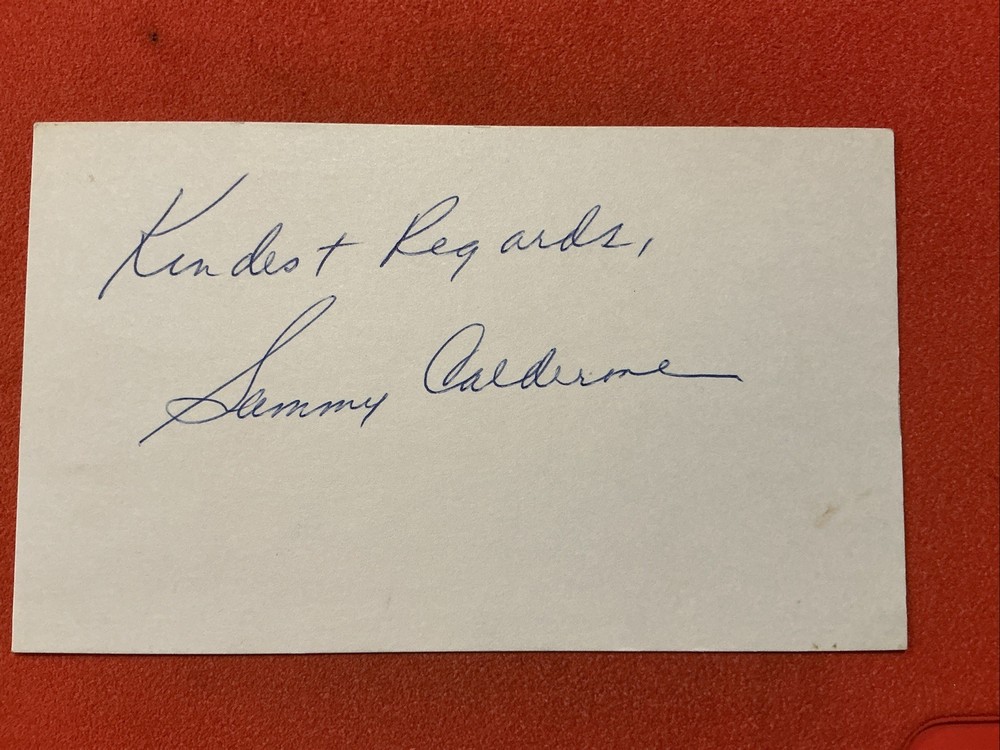 Kindest Regards,
Sammy Calderone